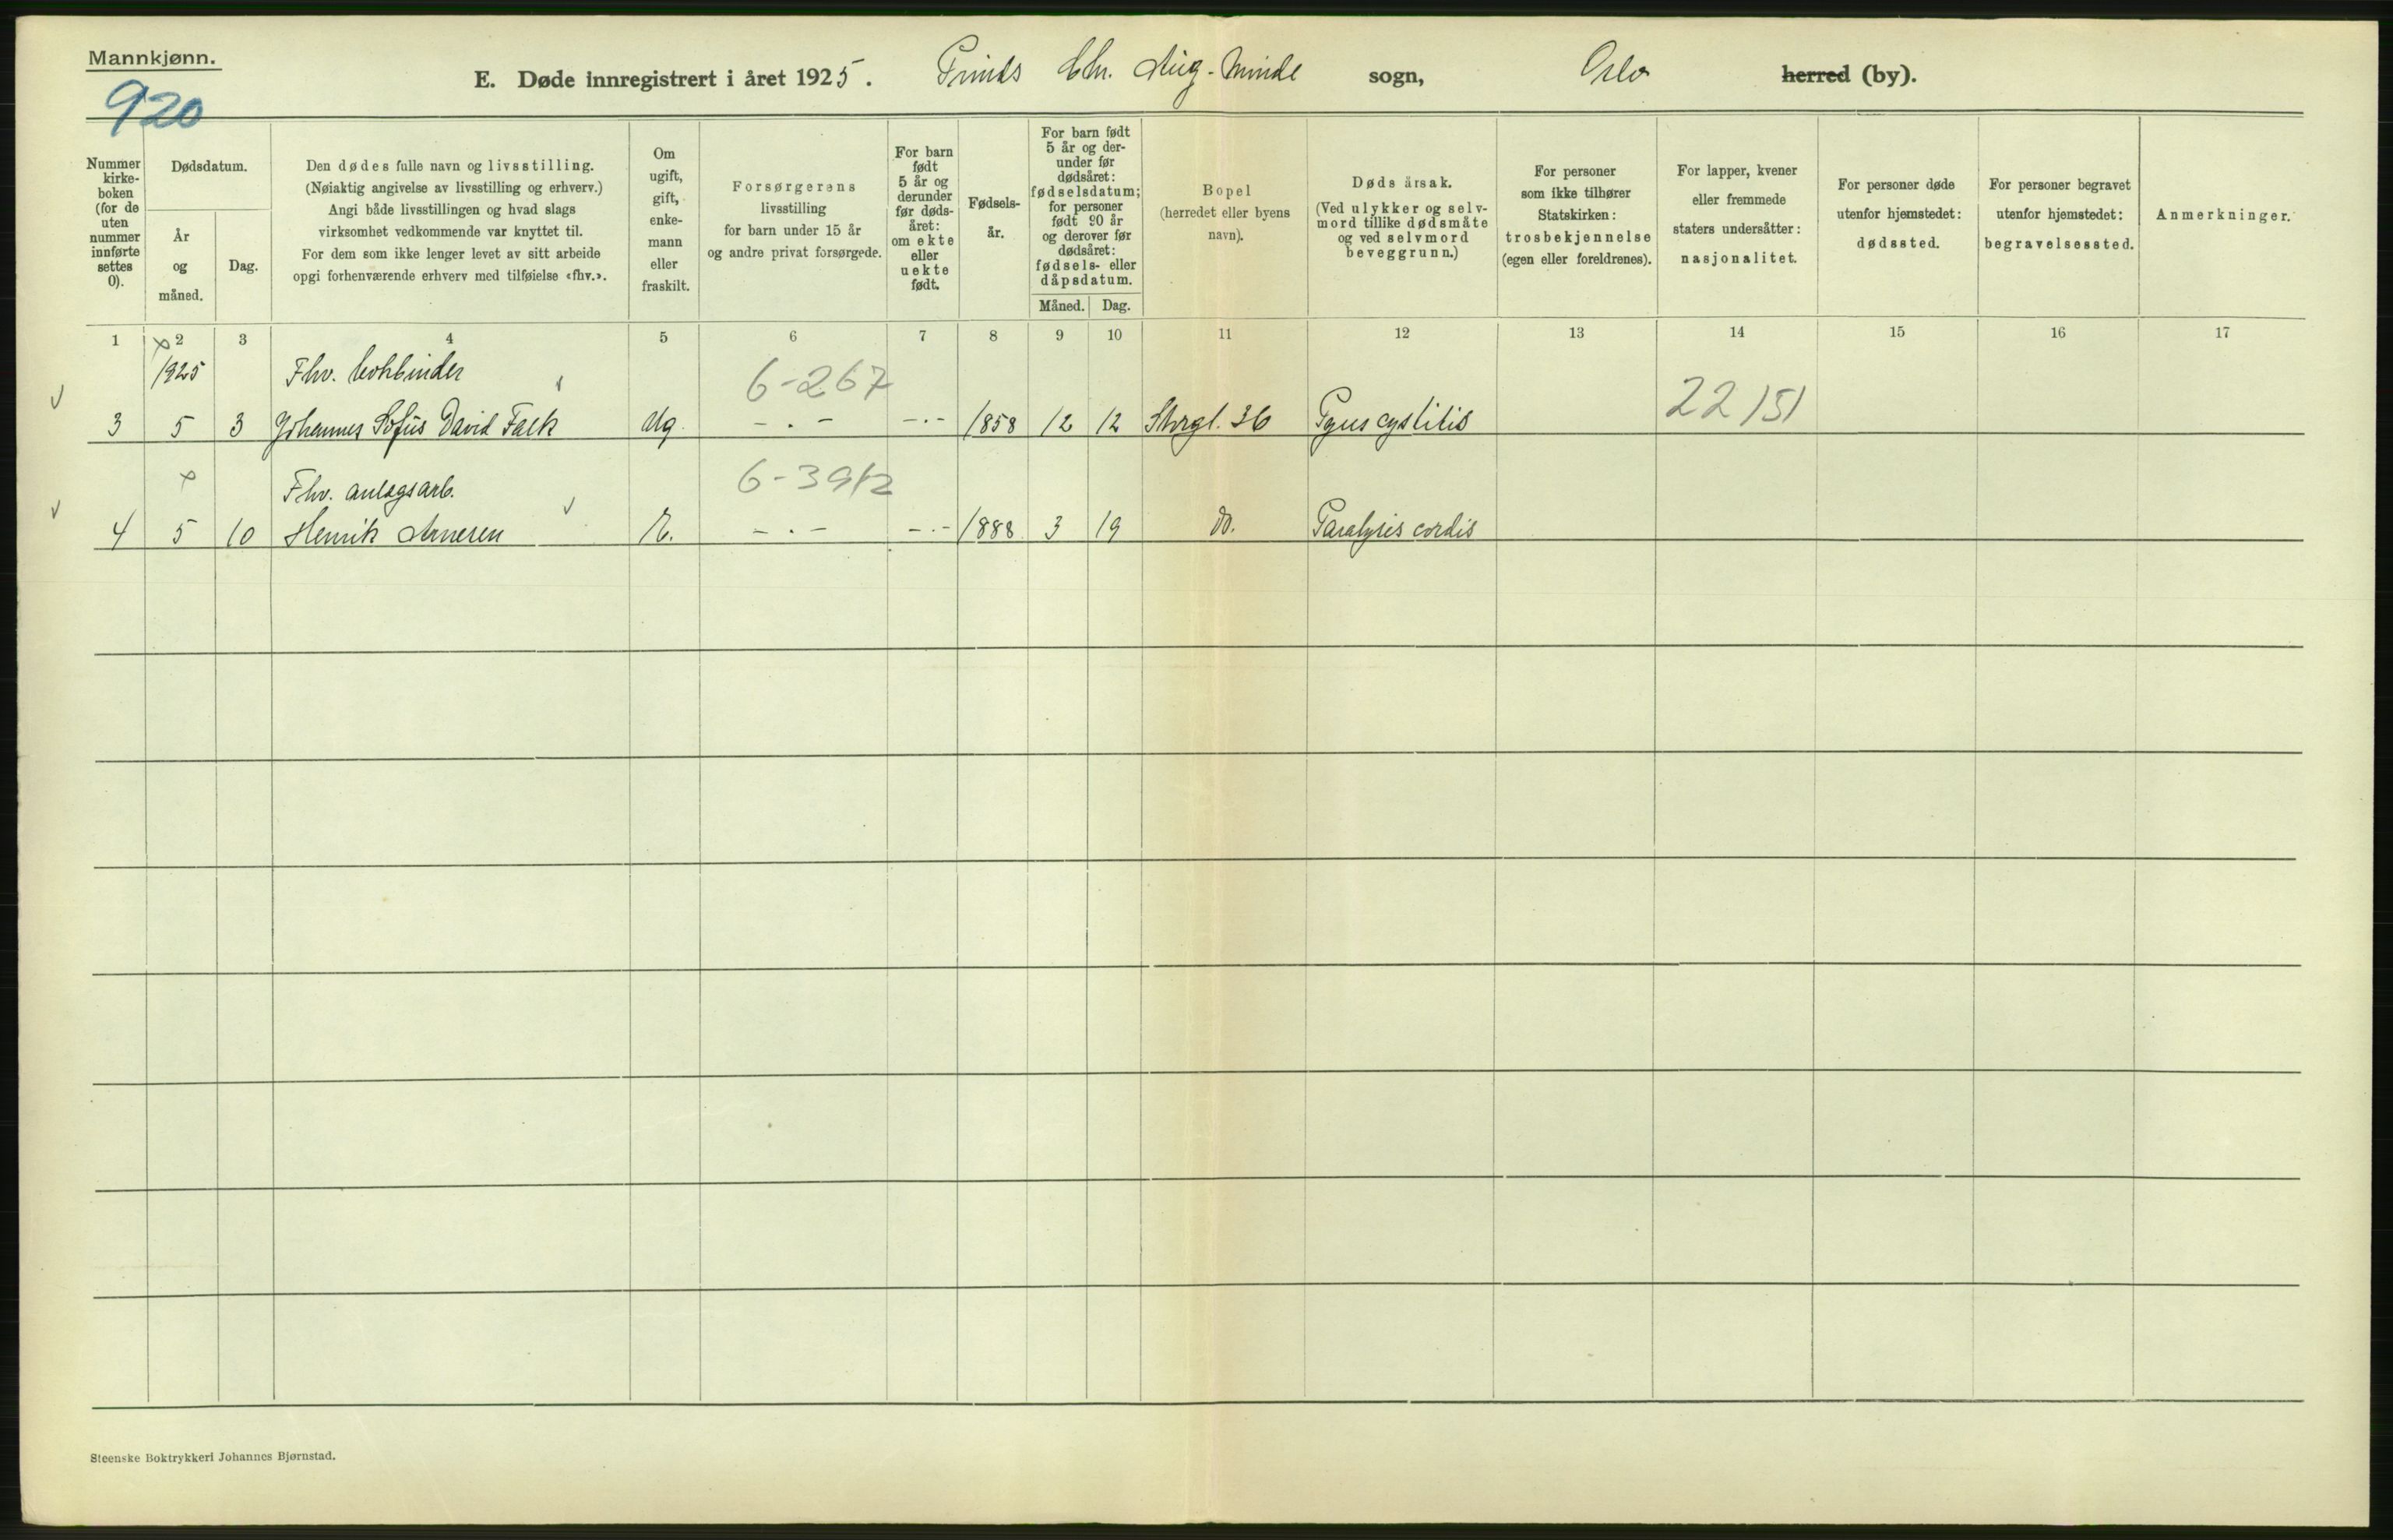 Mannkjønn.
920
E. Døde innregistrert i året 1925. Prinds Chr. Aug. Minde sogn, Oslo herred (by).
Nummer kirke-boken (for de uten nummer innførte settes 0).
Dødsdatum.
År og måned.
Dag.
Den dødes fulle navn og livsstilling.
(Nøiaktig angivelse av livsstilling og erhverv.)
Angi både livsstillingen og hvad slags
virksomhet vedkommende var knyttet til.
For dem som ikke lenger levet av sitt arbeide
opgi forhenværende erhverv med tilføielse «fhv.».
Om ugift, gift, enke-mann eller fraskilt.
Forsørgerens
livsstilling
for barn under 15 år
og andre privat forsørgede.
For barn født 5 år og derunder før døds-året: om ekte eller uekte født.
Fødsels-år.
For barn født 5 år og der-under før dødsåret: fødselsdatum; for personer født 90 år og derover før dødsåret: fødsels- eller dåpsdatum.
Måned. Dag.
Bopel
(herredet eller byens
navn).
Dødsårsak.
(Ved ulykker og selv-
mord tillike dødsmåte
og ved selvmord
beveggrunn.)
For personer
som ikke tilhører
Statskirken:
trosbekjennelse
(egen eller foreldrenes).
For lapper, kvener
eller fremmede
staters undersåtter:
nasjonalitet.
For personer døde
utenfor hjemstedet:
dødssted.
For personer begravet
utenfor hjemstedet:
begravelsessted.
Anmerkninger.
1 2 3 4 5 6 7 8 9 10 11 12 13 14 15 16 17
1925 Fhv. bokbinder 6-267
3 5 3 Johannes Sofus David Falk Ug. - . - - . - 1858 12 12 Storgt. 36 Pyus cystitis 22151
Fhv. anlægsarb. 6-3912
4 5 10 Henrik Arnesen E. - . - - . - 1888 3 19 do. Paralysis cordis
Steenske Boktrykkeri Johannes Bjørnstad.